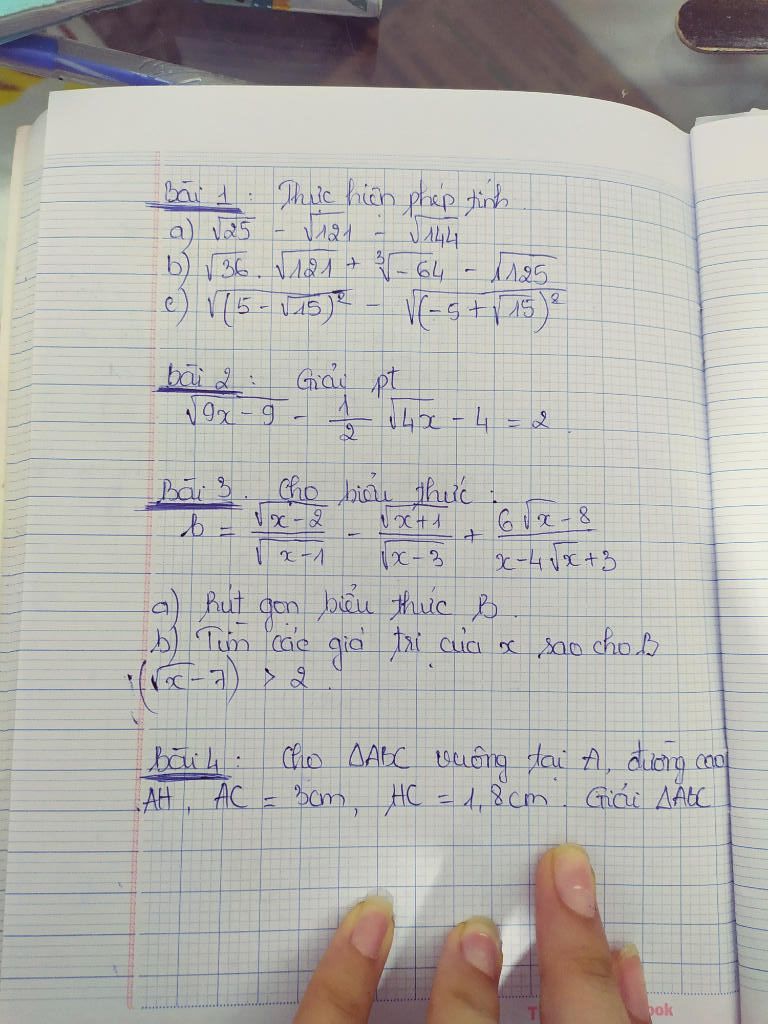 Bài 1 : Thực hiện phép tính
a) √25 - √121 - √144
b) √36 . √121 + ∛-64 - √1125
c) √(5 - √15)² - √(-5 + √15)²
Bài 2 : Giải pt
√9x - 9 - 1/2 √4x - 4 = 2
Bài 3 . Cho biểu thức :
B = √x - 2 / √x - 1 - √x + 1 / √x - 3 + 6√x - 8 / x - 4√x + 3
a) Rút gọn biểu thức B
b) Tìm các giá trị của x sao cho B
.(√x - 7) > 2 .
Bài 4 : Cho ΔABC vuông tại A, đường cao
AH, AC = 3cm, HC = 1,8cm . Giải ΔABC
ook